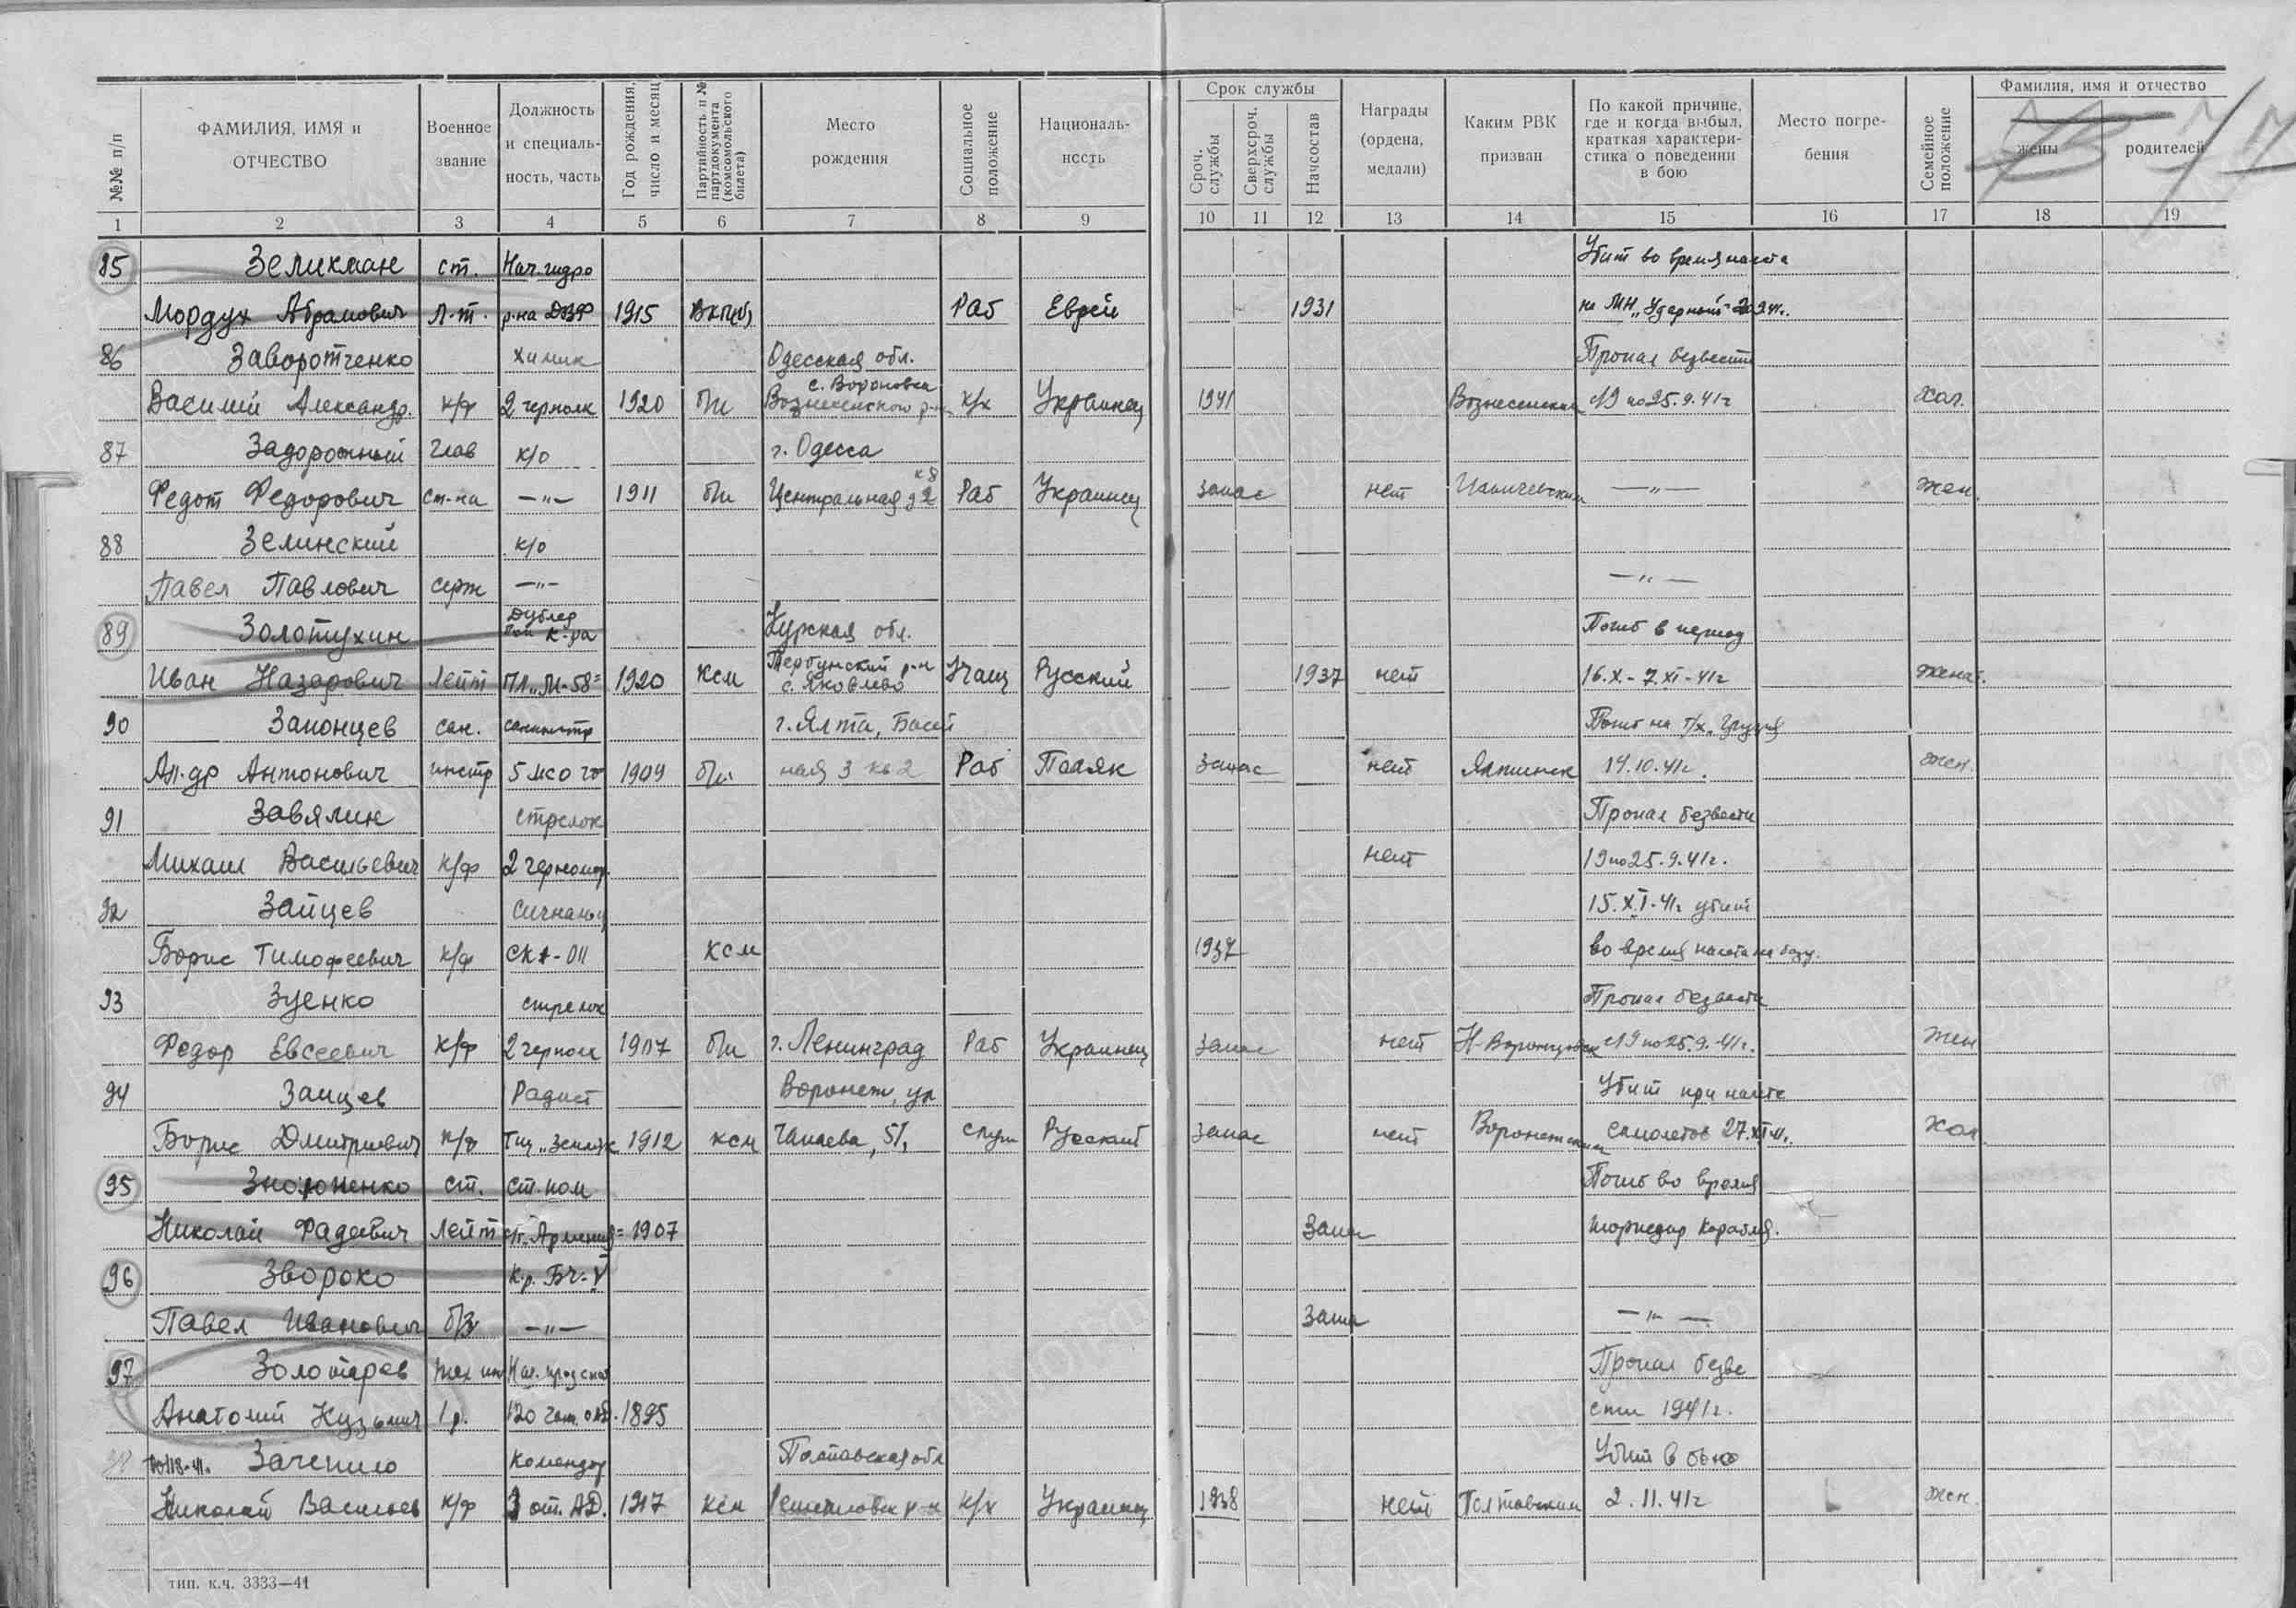 №№ п/п
ФАМИЛИЯ, ИМЯ и ОТЧЕСТВО
Военное звание
Должность и специальность, часть
Год рождения, число и месяц
Партийность и № партдокумента (комсомольского билета)
Место рождения
Социальное положение
Националь-ность
Срок службы
Сроч. службы
Сверхсроч. службы
Начсостав
Награды (ордена, медали)
Каким РВК призван
По какой причине, где и когда выбыл, краткая характери-стика о поведении в бою
Место погре-бения
Семейное положение
Фамилия, имя и отчество
жены
родителей
1 2 3 4 5 6 7 8 9 10 11 12 13 14 15 16 17 18 19
85 Зеликман ст. Нач. гидро Убит во время налета
Мордух Абрамович л-т. р-на ДВФ 1915 ВКП(б) Раб Еврей 1931 на МН „Ударный"
86 Заворотченко химик Одесская обл. Пропал безвести
с. Вороновка
Василий Александр. к/ф 2 черполк 1920 б/п Вознесенского р-н к/х Украинец 1941 Вознесенский с 19 по 25.9.41г Хол.
87 Задорожный глав к/о г. Одесса
Федот Федорович ст-на —"— 1911 б/п Центральная д 2 к 8 Раб Украинец запас нет Ильичевский —"— жен.
88 Зелинский к/о
Павел Павлович серж —"— —"—
89 Золотухин Дублер пом к-ра Курская обл. Погиб в период
Иван Назарович Лейт ПЛ „М-58" 1920 ксм Тербунский р-н с. Яковлево Учащ Русский 1937 нет 16.X.-7.XI-41г женат.
90 Запонцев сан. г. Ялта, Бассей Погиб на т/х „Грузия
Ал-др Антонович инстр 5 мсо 1909 б/п ная 3 кв 2 Раб Поляк Запас нет Ялтинск 14.10.41г. жен.
91 Завялик стрелок Пропал безвести
Михаил Васильевич к/ф 2 черномор. нет 19 по 25.9.41г.
92 Зайцев сигнальщ 15.XI-41г убит
Борис Тимофеевич к/ф СКА-011 ксм 1937 во время налета на базу.
93 Зуенко стрелок Пропал безвести
Федор Евсеевич к/ф 2 черпол 1907 б/п г. Ленинград Раб Украинец Запас нет Н-Воронцовск с 19 по 25.9.-41г. Жен
94 Зайцев Радист Воронеж, ул Убит при налете
Борис Дмитриевич к/ф Тщ „Земляк 1912 ксм Чапаева, 51, служ Русский Запас нет Воронежским самолетов 27.XI-41. Хол.
95 ст. ст. пом Погиб во время
Николай Фадеевич Лейт „Армения" 1907 Запас торпедир корабля.
96 Звороко К-р. БЧ-V
Павел Иванович —"— Запа —"—
97 Золотарев тех инт Нач. прод снаб Пропал безве
Анатолий Кузьмич 1 р. 120 1895 сти 1941г.
Зачепило Комендор Полтавская обл Убит в бою
Николай Васильев к/ф 3 от. АД. 1917 ксм Решетиловск р-н к/х Украинец 1938 нет Полтавским 2.11.41г жен.
тип. к.ч. 3333—41